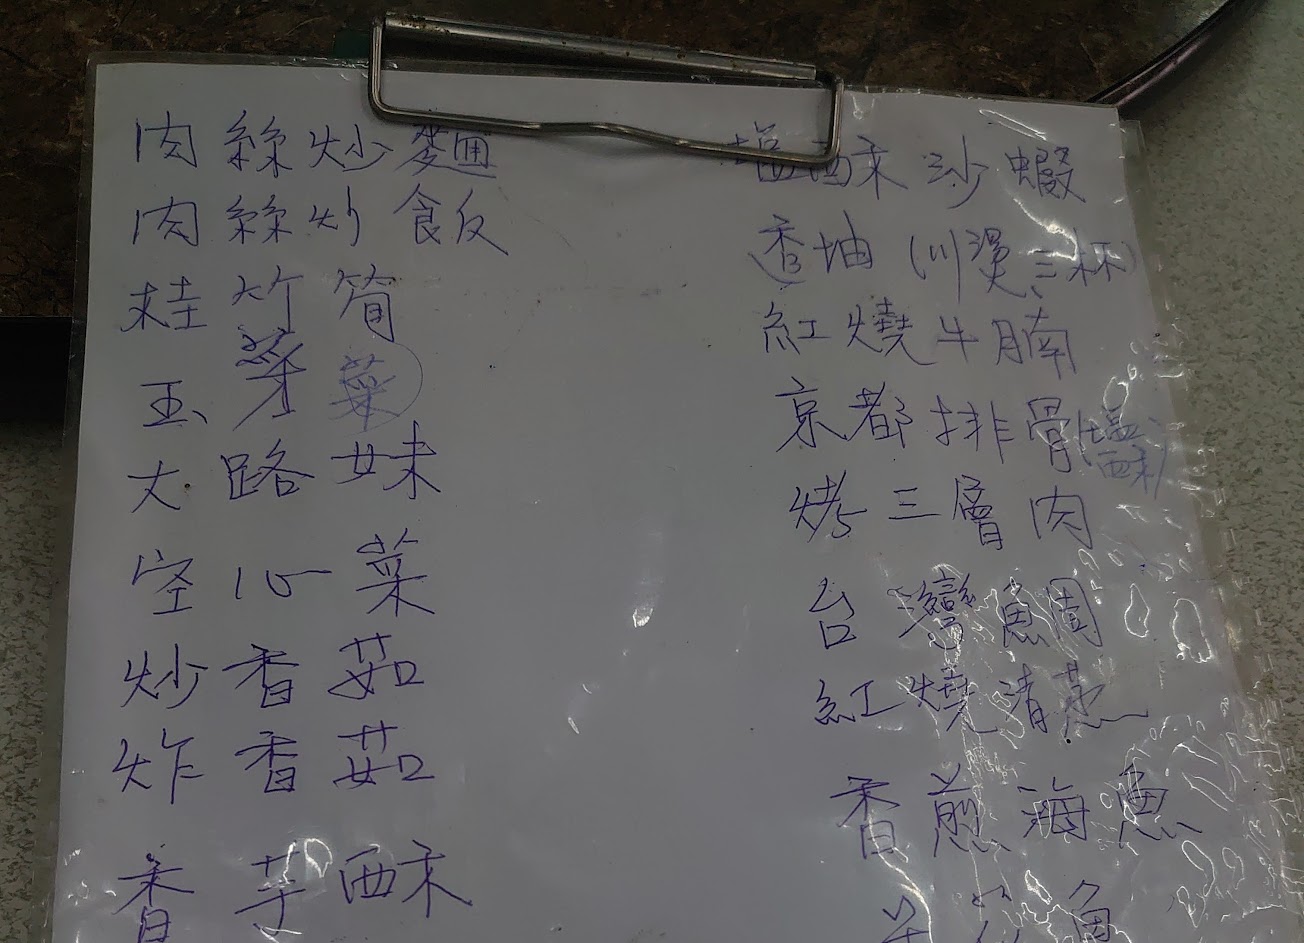 肉絲炒麵
肉絲炒飯
桂竹筍
玉芽菜
大路妹
空心菜
炒香菇
炸香菇
香芋酥
塩酥沙蝦
透抽(川燙、三杯)
紅燒牛腩
京都排骨(塩酥)
烤三層肉
台灣鯝
紅燒清蒸
香煎海魚
魚